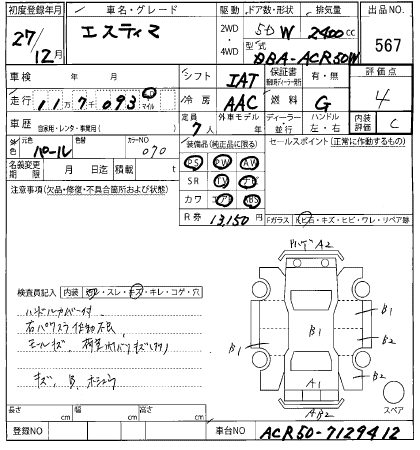 初度登録年月 車名・グレード 駆動 ドア数・形状 排気量 出品NO.
27/12月 エスティマ 2WD・4WD 5D W 2400cc 567
型式 DBA-ACR50W
車検 年 月 シフト IAT 保証書 有・無 評価点
走行 11万7千093 マイル 冷房 AAC 燃料 G 4
車歴 自家用・レンタ・事業用( ) 定員 7人 外車モデル 年 ディーラー・並行 ハンドル 左・右 内装評価 C
外色 元色 パール 色替 カラーNO 070 装備品(純正品に限る) セールスポイント(正常に作動するもの)
名義変更期限 月 日迄 積載 t PS PW AW
注意事項(欠品・修復・不具合箇所および状態) SR TV ナビ
カワ エアB ABS
R券 13,150円 Fガラス ヒ石・キズ・ヒビ・ワレ・リペア跡
バンパゲ A2
検査員記入 内装 ヨゴレ・スレ・キズ・キレ・コゲ・穴
ハンドルカバー付
右パワスラ作動不良
モールキズ
キズ、B
B1 B1 B1 B2 B2
A1
AB2
スペア
長さ cm 幅 cm 高さ cm
登録NO 車台NO ACR50-7129412